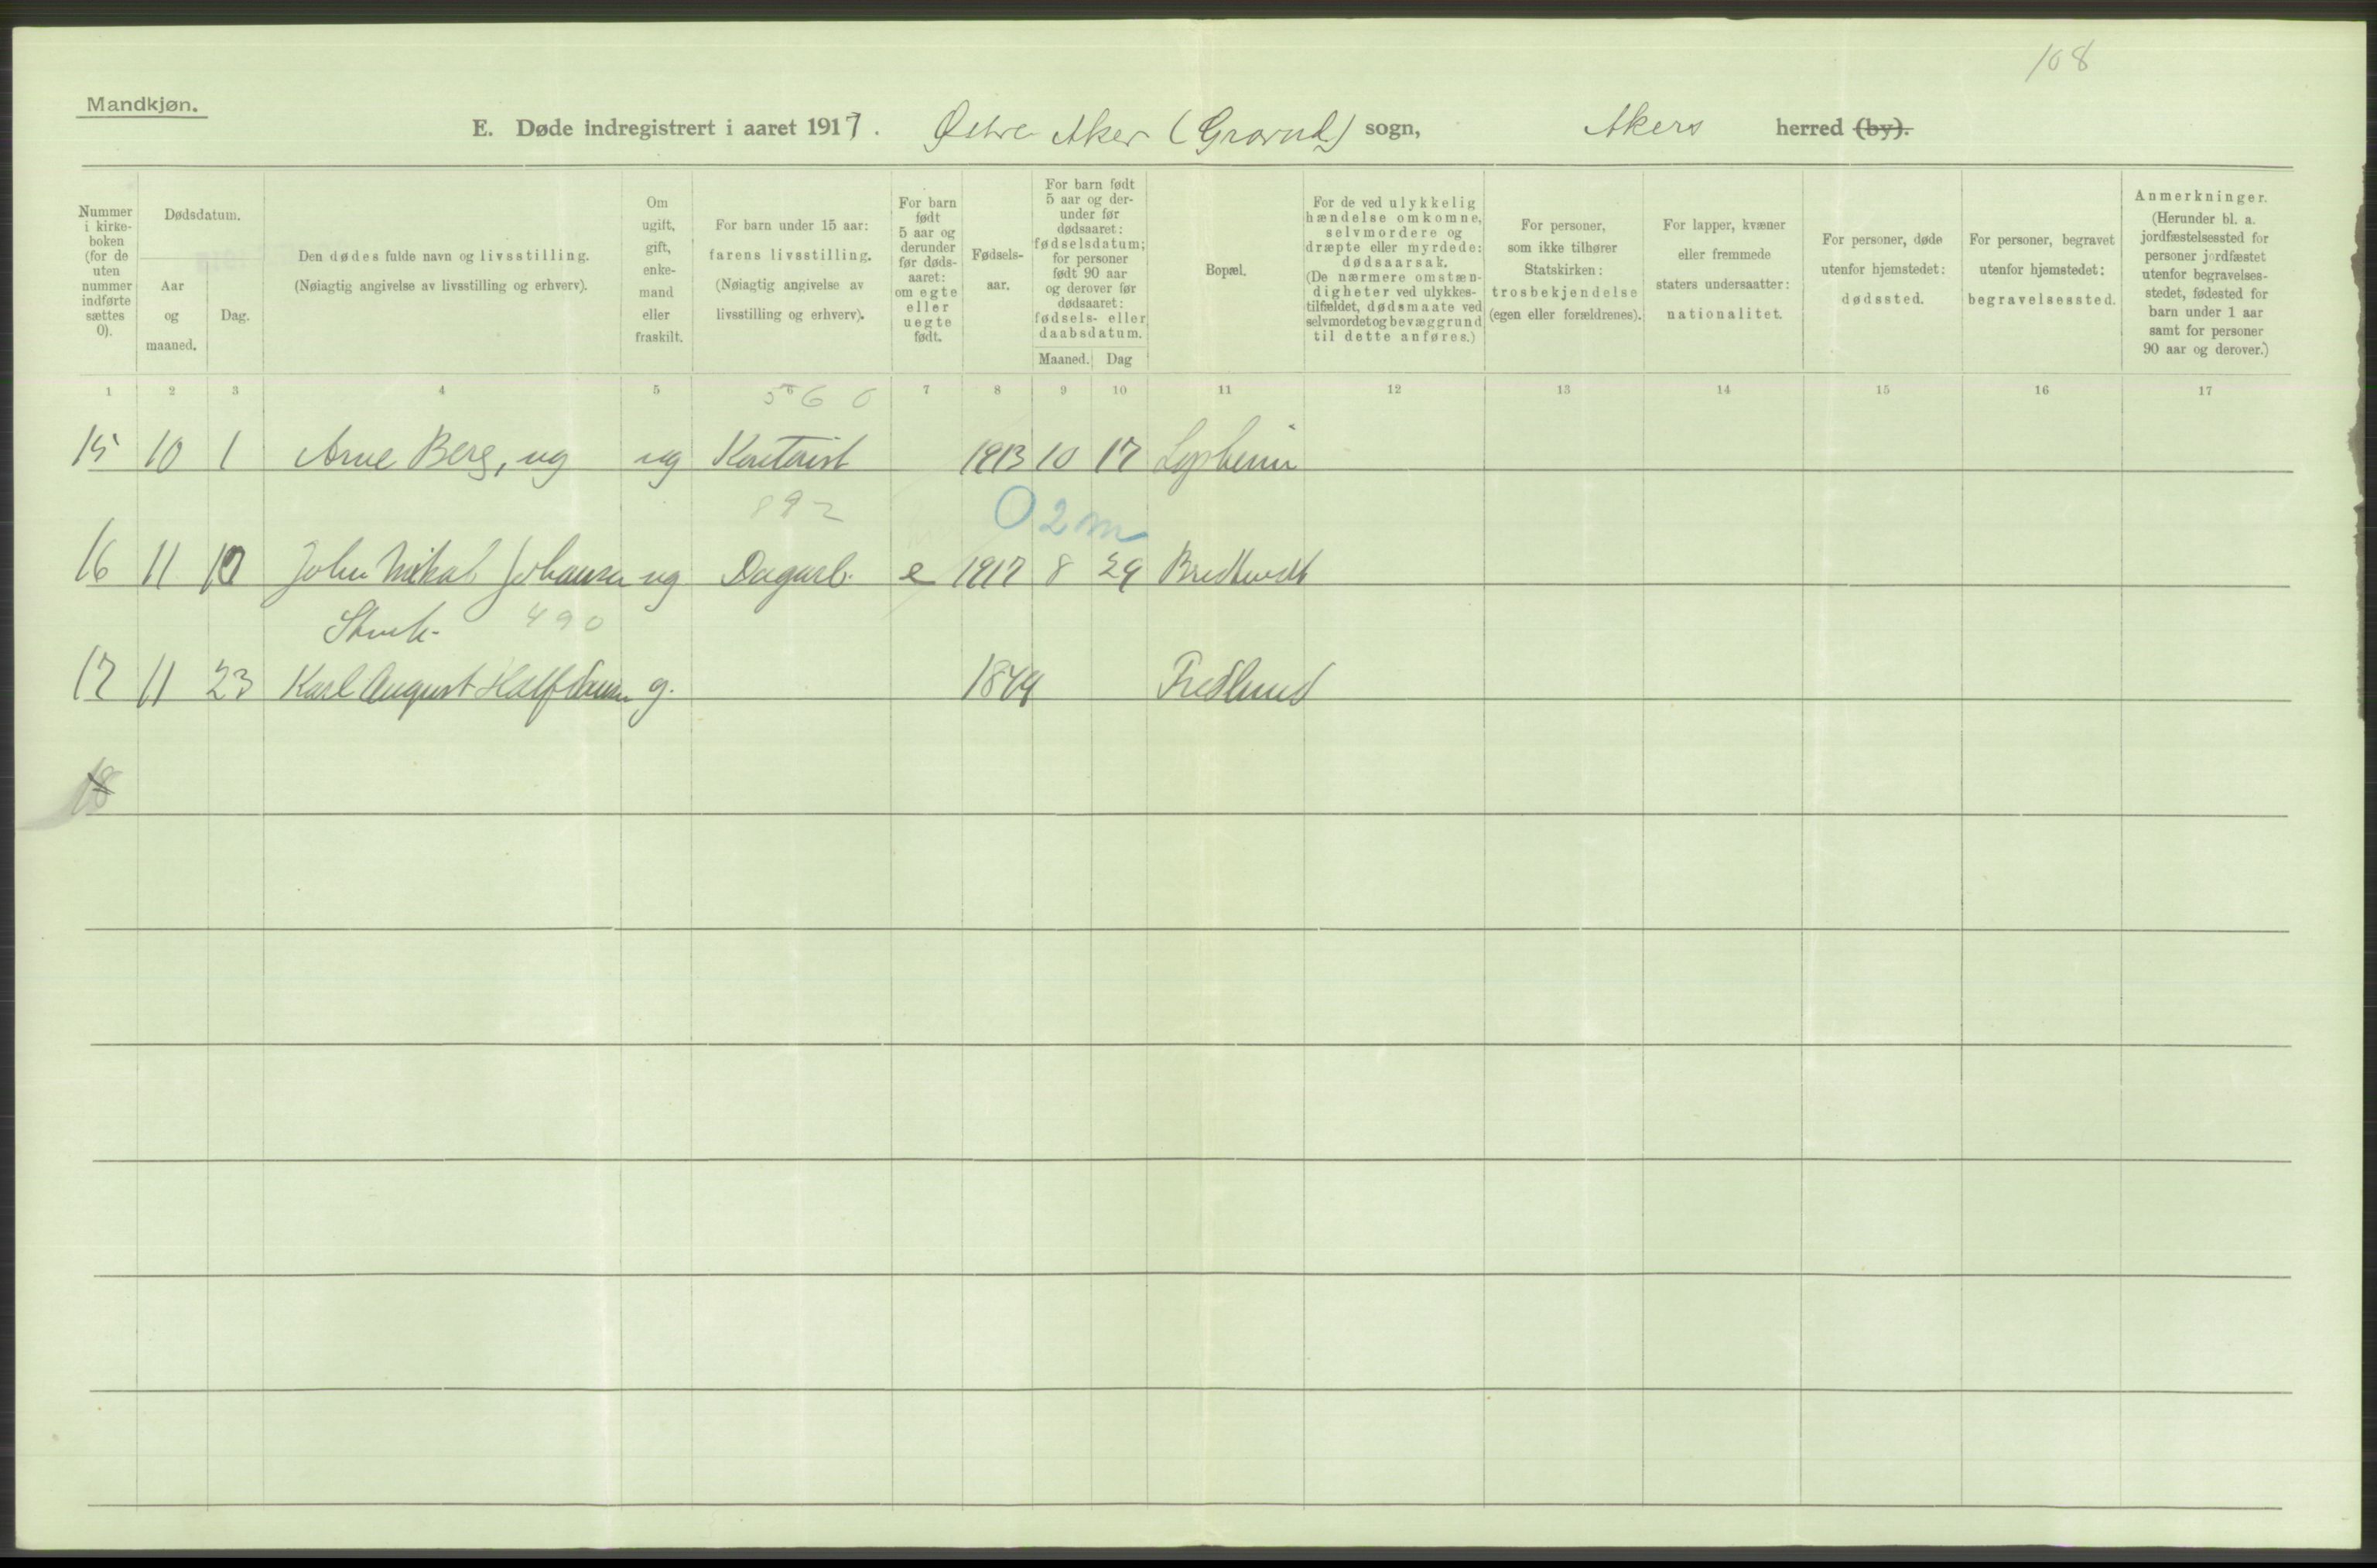 108
Mandkjøn.
E. Døde indregistrert i aaret 1917. Østre Aker (Grorud) sogn, Akers herred (by).
Nummer i kirkeboken (for de uten nummer indførte sættes 0).
Dødsdatum.
Aar og maaned.
Dag.
Den dødes fulde navn og livsstilling.
(Nøiagtig angivelse av livsstilling og erhverv).
Om ugift, gift, enkemand eller fraskilt.
For barn under 15 aar: farens livsstilling.
(Nøiagtig angivelse av livsstilling og erhverv).
For barn født 5 aar og derunder før dødsaaret: om egte eller uegte født.
Fødselsaar.
For barn født 5 aar og derunder før dødsaaret: fødselsdatum; for personer født 90 aar og derover før dødsaaret: fødsels- eller daabsdatum.
Maaned. Dag
Bopæl.
For de ved ulykkelig hændelse omkomne, selvmordere og dræpte eller myrdede: dødsaarsak.
(De nærmere omstændigheter ved ulykkestilfældet, dødsmaate ved selvmordet og bevæggrund til dette anføres.)
For personer, som ikke tilhører Statskirken: trosbekjendelse (egen eller forældrenes).
For lapper, kvæner eller fremmede staters undersaatter: nationalitet.
For personer, døde utenfor hjemstedet: dødssted.
For personer, begravet utenfor hjemstedet: begravelsessted.
Anmerkninger.
(Herunder bl. a. jordfæstelsessted for personer jordfæstet utenfor begravelsesstedet, fødested for barn under 1 aar samt for personer 90 aar og derover.)
1 2 3 4 5 7 8 9 10 11 12 13 14 15 16 17
560
15 10 1 Arne Berg, ug ug Kontorist 1913 10 17
892
0 2 m
16 11 10 John Mikal Johansen ug Dagarb. e 1917 8 29 Bredtvedt
490
17 11 23 Karl August Halfdansen g. 1849 Fredlund
18